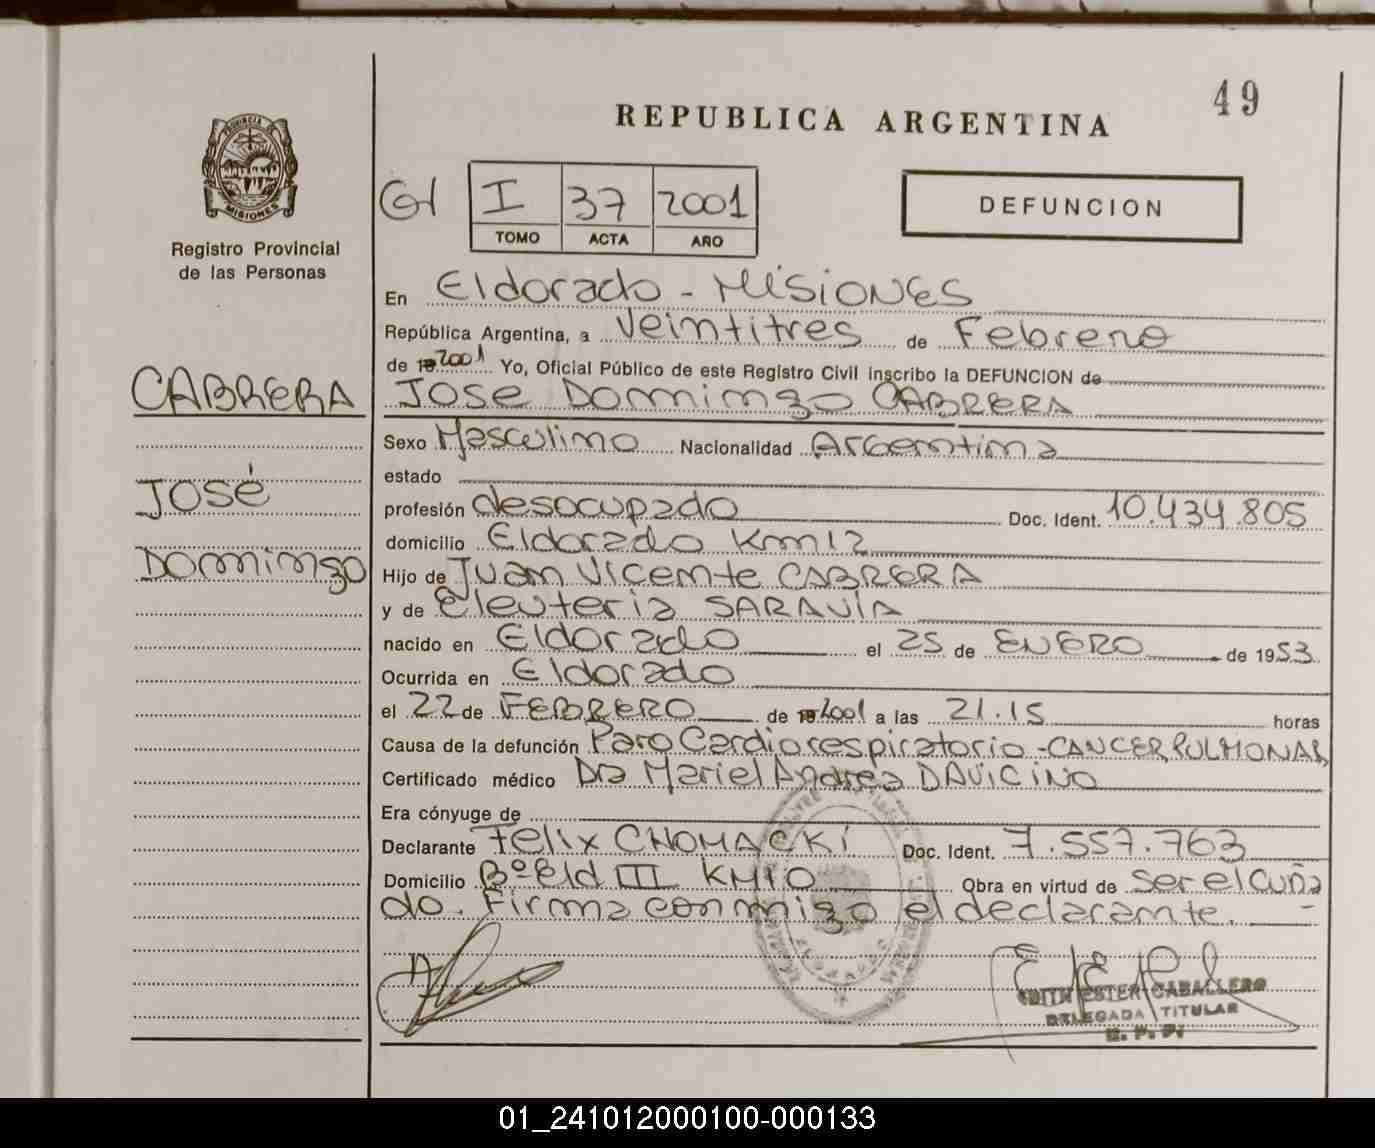 49
REPUBLICA ARGENTINA
PROVINCIA DE
MISIONES
Registro Provincial
de las Personas
I 37 2001
TOMO ACTA AÑO
DEFUNCION
En Eldorado - MISIONES
República Argentina, a Veintitres de Febrero
de 2001 Yo, Oficial Público de este Registro Civil inscribo la DEFUNCION de
CABRERA
JOSE DOMINGO CABRERA
Sexo Masculino Nacionalidad Argentina
estado
JOSÉ
profesión desocupado Doc. Ident. 10.434.805
domicilio Eldorado Km12
DOMINGO
Hijo de JUAN VICENTE CABRERA
y de Eleuteria SARAVIA
nacido en Eldorado el 25 de ENERO de 1953
Ocurrida en Eldorado
el 22 de FEBRERO de 2001 a las 21.15 horas
Causa de la defunción Paro Cardiorespiratorio - CANCER PULMONAR
Certificado médico Dra Mariel Andrea DAVICINO
Era cónyuge de
Declarante Felix CHOMACKI Doc. Ident. 7.557.763
Domicilio Bº Eld III KM10 Obra en virtud de ser el cuña
do. Firma conmigo el declarante.
EDITH ESTER CABALLERO
DELEGADA TITULAR
R. P. P.
01_241012000100-000133